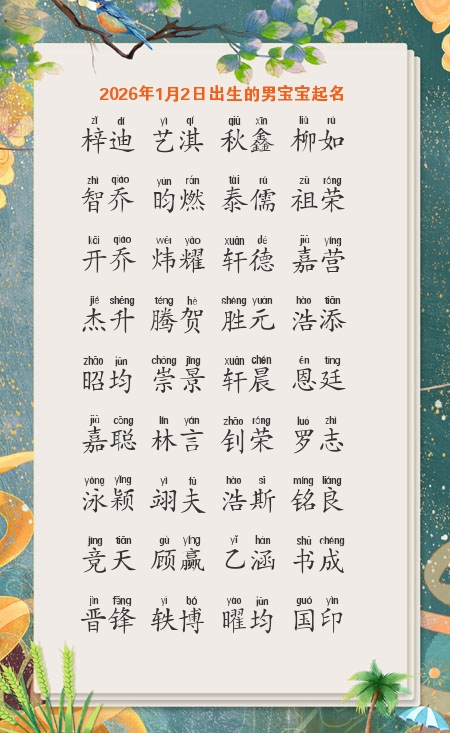 2026年1月2日出生的男宝宝起名
zǐ dí yì qí qiū xīn liǔ rú
梓迪 艺淇 秋鑫 柳如
zhì qiáo yún rán tài rú zǔ róng
智乔 昀燃 泰儒 祖荣
kāi qiáo wěi yào xuān dé jiā yíng
开乔 炜耀 轩德 嘉营
jié shēng téng hè shèng yuán hào tiān
杰升 腾贺 胜元 浩添
zhāo jūn chóng jǐng xuān chén ēn tíng
昭均 崇景 轩晨 恩廷
jiā cōng lín yán zhāo róng luó zhì
嘉聪 林言 钊荣 罗志
yǒng yǐng yì fū hào sī míng liáng
泳颖 翊夫 浩斯 铭良
jìng tiān gù yíng yǐ hán shū chéng
竞天 顾赢 乙涵 书成
jìn fēng yì bó yào jūn guó yìn
晋锋 轶博 曜均 国印